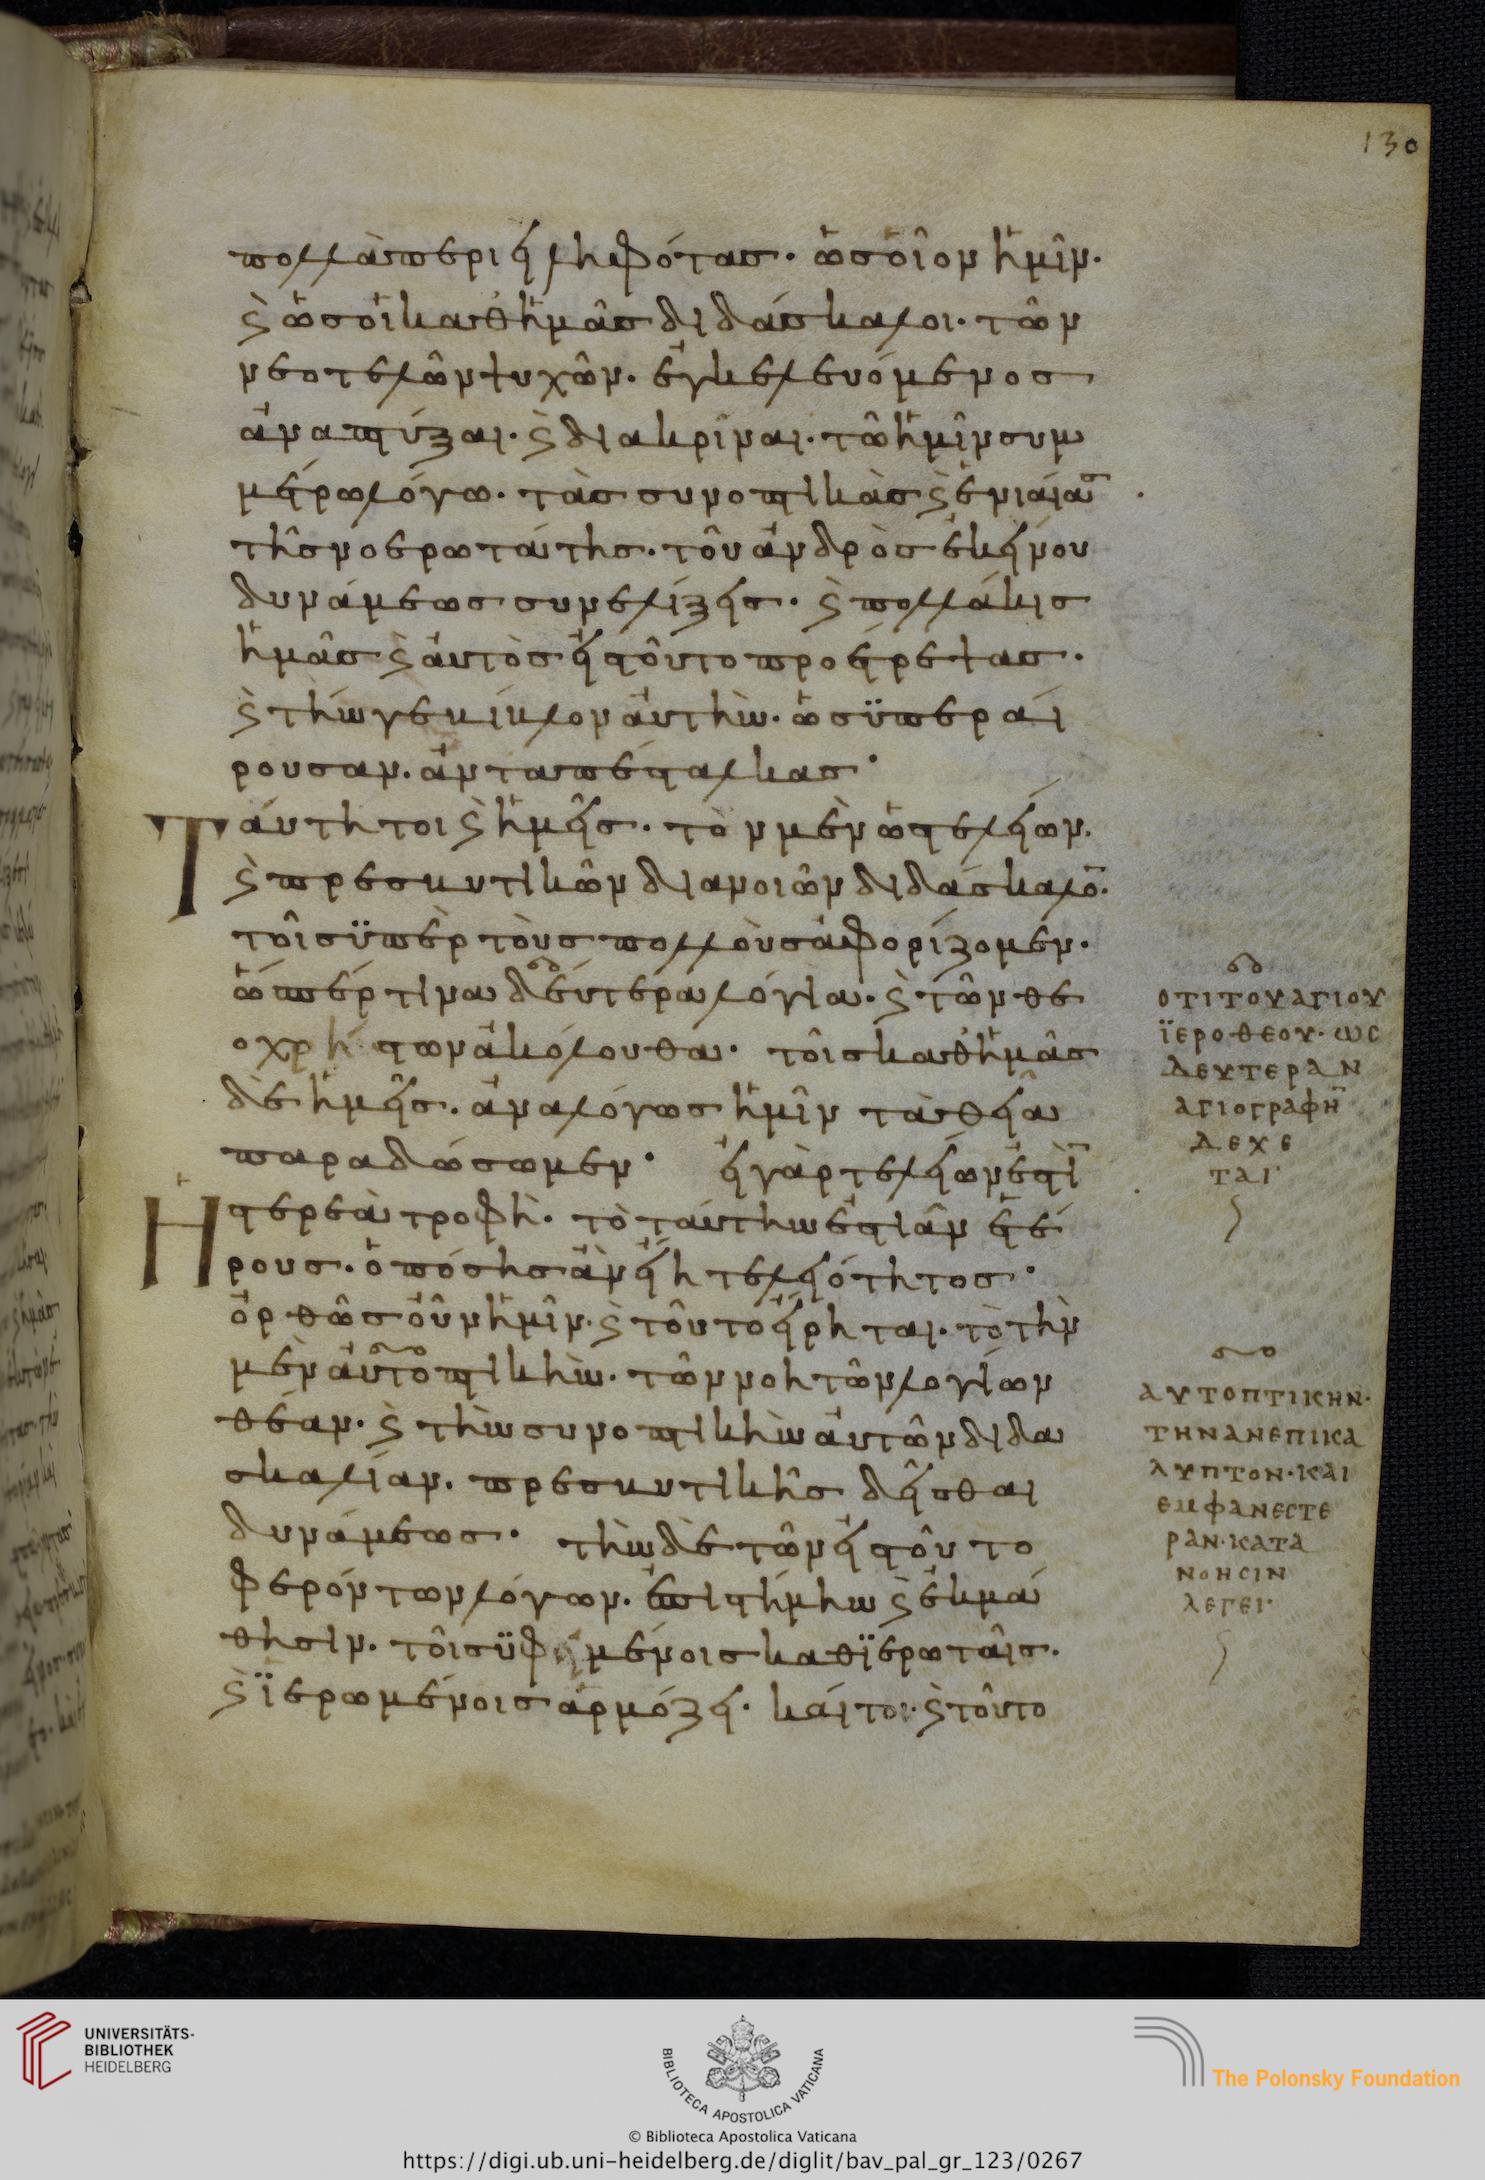 130
πολλὰ περιειληφότας· ὡς οἷον ἡμῖν·
ϗ ὡς οἱ καθ' ἡμᾶς διδάσκαλοι· τῶν
νεοτελῶν ψυχῶν· ἐγκελευόμενος
ἀναπτύξαι· ϗ διακρῖναι· τῶ ἡμῖν συμ
μέρω λόγω· τὰς συνοπτικὰς ϗ ἑνιαία̅
τῆς νοερωτάτης· τοῦ ἀνδρὸς ἐκείνου
δυνάμεως συνελίξεις· ϗ πολλάκις
ἡμᾶς ϗ αὐτὸς εἰς τοῦτο προέτρεψας·
ϗ τήν γε βίβλον αὐτὴν· ὡς ὑπεραί
ρουσαν· ἀνταπέσταλκας·
Ταύτη τοι ϗ ἡμεῖς· τὸν μὲν ὡς τελείων·
ϗ πρεσβυτικῶν διανοιῶν διδάσκαλο̅·
τοῖς ὑπὲρ τοὺς πολλοὺς ἀφορίζομεν·
ὥσπέρ τινα δεύτερα λόγια· ϗ τῶν θε
οχρήστων ἀκόλουθα· τοῖς καθ' ἡμᾶς
δὲ ἡμεῖς· ἀναλόγως ἡμῖν τὰ θεῖα
παραδώσωμεν· εἰ γὰρ τελείων ἐστὶ̅
Ἡ στερεὰ τροφὴ· τὸ ταύτην ἑστιᾶν ἑτέ
ρους· ὁπόσης ἂν εἴη τελειότητος·
ὀρθῶς οὖν ἡμῖν· ϗ τοῦτο εἴρηται· τὸ τὴν
μὲν αὐτοπτικὴν· τῶν νοητῶν λογίων
θέαν· ϗ τὴν συνοπτικὴν αὐτῶν διδα
σκαλίαν· πρεσβυτικῆς δεῖσθαι
δυνάμεως· τὴν δὲ τῶν εἰς τοῦτο
φερόντων λόγων· ἐπιστήμην ϗ ἐκμά
θησιν· τοῖς ὑφειμένοις καθϊερωταῖς·
ϗ ϊερωμένοις ἁρμόζει· καίτοι· ϗ τοῦτο
ΟΤΙ ΤΟΥ ΑΓΙΟΥ
ΪΕΡΟΘΕΟΥ· ΩС
ΔΕΥΤΕΡΑΝ
ΑΓΙΟΓΡΑΦΗ̅
ΔΕΧΕ
ΤΑΙ·
ΑΥΤΟΠΤΙΚΗΝ·
ΤΗΝ ΑΝΕΠΙΚΑ
ΛΥΠΤΟΝ· ΚΑΙ
ΕΜΦΑΝΕСΤΕ
ΡΑΝ· ΚΑΤΑ
ΝΟΗСΙΝ
ΛΕΓΕΙ·
UNIVERSITÄTS-
BIBLIOTHEK
HEIDELBERG
BIBLIOTECA APOSTOLICA VATICANA
© Biblioteca Apostolica Vaticana
The Polonsky Foundation
https://digi.ub.uni-heidelberg.de/diglit/bav_pal_gr_123/0267